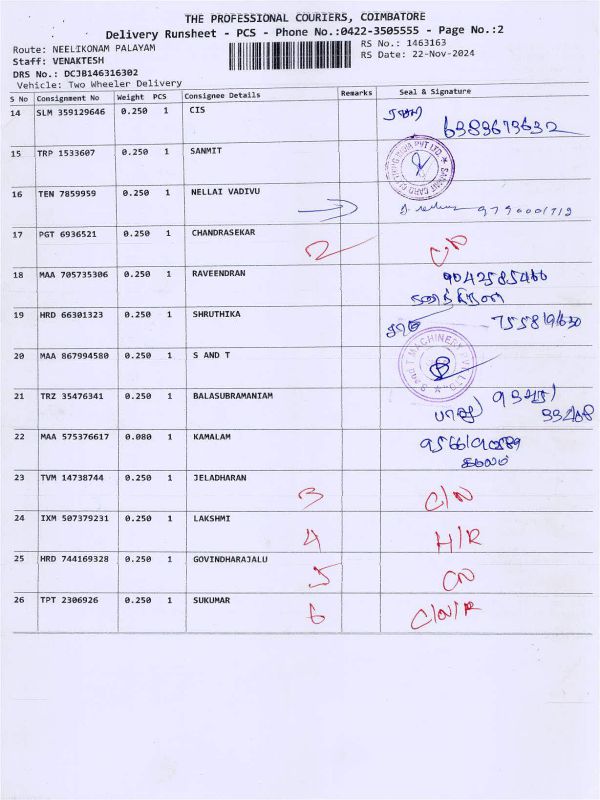 THE PROFESSIONAL COURIERS, COIMBATORE
Delivery Runsheet - PCS - Phone No.:0422-3505555 - Page No.:2
Route: NEELIKONAM PALAYAM RS No.: 1463163
Staff: VENAKTESH RS Date: 22-Nov-2024
DRS No.: DCJB146316302
Vehicle: Two Wheeler Delivery
S No Consignment No Weight PCS Consignee Details Remarks Seal & Signature
14 SLM 359129646 0.250 1 CIS
6383673632
15 TRP 1533607 0.250 1 SANMIT
16 TEN 7859959 0.250 1 NELLAI VADIVU
17 PGT 6936521 0.250 1 CHANDRASEKAR 2
18 MAA 705735306 0.250 1 RAVEENDRAN
19 HRD 66301323 0.250 1 SHRUTHIKA
20 MAA 867994580 0.250 1 S AND T
S and T MACHINERY PVT LTD
21 TRZ 35476341 0.250 1 BALASUBRAMANIAM
22 MAA 575376617 0.080 1 KAMALAM
கமலம்
23 TVM 14738744 0.250 1 JELADHARAN 3 C/N
24 IXM 507379231 0.250 1 LAKSHMI 4 H/R
25 HRD 744169328 0.250 1 GOVINDHARAJALU 5 CN
26 TPT 2306926 0.250 1 SUKUMAR 6 C/N/R